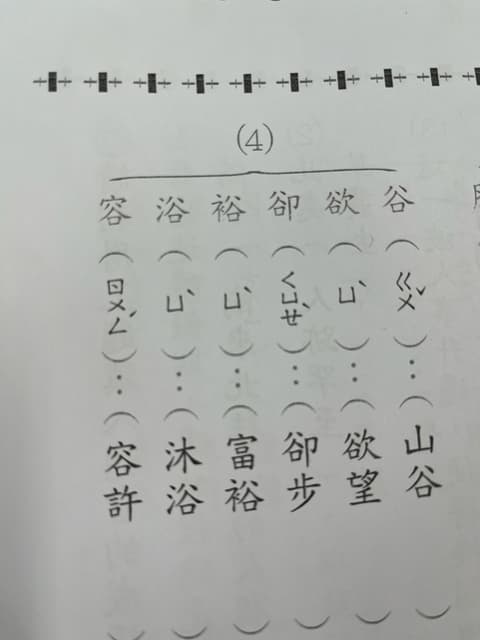 (4)
谷(ㄍㄨˇ):(山谷)
欲(ㄩˋ):(欲望)
卻(ㄑㄩㄝˋ):(卻步)
裕(ㄩˋ):(富裕)
浴(ㄩˋ):(沐浴)
容(ㄖㄨㄥˊ):(容許)